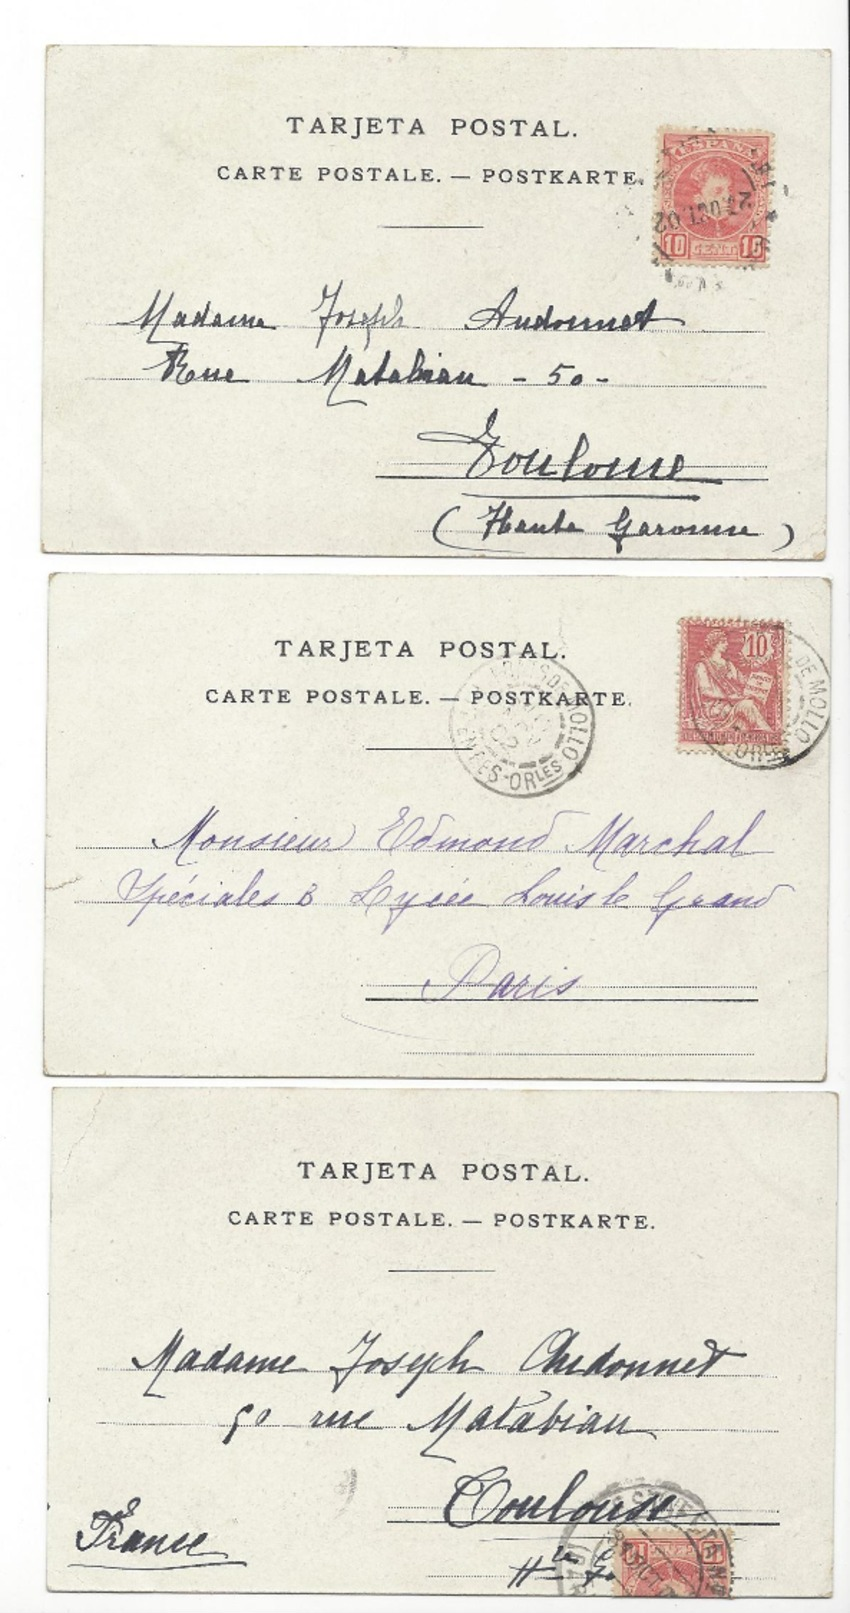 TARJETA POSTAL.
CARTE POSTALE. — POSTKARTE.
ESPAÑA
27 OCT 02
10 10
Madame Joseph Andonnet
Rue Matabiau - 50 -
Toulouse
(Haute Garonne)
TARJETA POSTAL.
CARTE POSTALE. — POSTKARTE.
10
DE MOLLO
DE MOLLO
-ORLES
Monsieur Edmond Marchal
Spéciales B Lycée Louis le Grand
Paris
TARJETA POSTAL.
CARTE POSTALE. — POSTKARTE.
Madame Joseph Andonnet
50 rue Matabiau
Toulouse
France
Hte